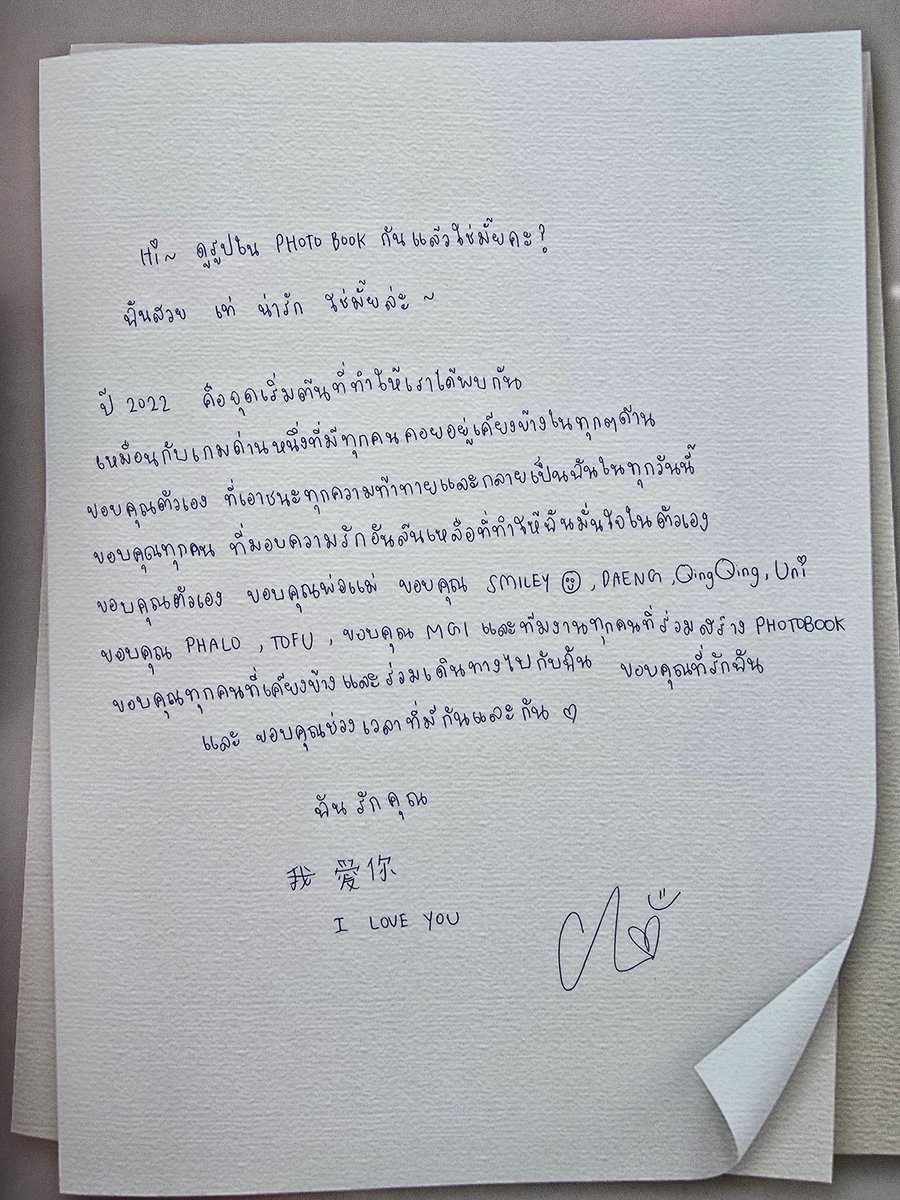 Hi~ ดูรูปใน PHOTO BOOK กันแล้วใช่มั้ยคะ?
ฉันสวย เท่ น่ารัก ใช่มั้ยล่ะ ~
ปี 2022 คือจุดเริ่มต้นที่ทำให้เราได้พบกัน
เหมือนกับเกมด่านหนึ่งที่มีทุกคนคอยอยู่เคียงข้างในทุกๆด้าน
ขอบคุณตัวเอง ที่เอาชนะทุกความท้าทายและกลายเป็นฉันในทุกวันนี้
ขอบคุณทุกคน ที่มอบความรักอันล้นเหลือที่ทำให้ฉันมั่นใจในตัวเอง
ขอบคุณตัวเอง ขอบคุณพ่อแม่ ขอบคุณ SMILEY ☺, DAENG, QingQing, Uni
ขอบคุณ PHALO, TOFU, ขอบคุณ MGI และทีมงานทุกคนที่ร่วมสร้าง PHOTOBOOK
ขอบคุณทุกคนที่เคียงข้างและร่วมเดินทางไปกับฉัน ขอบคุณที่รักฉัน
และ ขอบคุณช่วงเวลาที่มีกันและกัน ♡
ฉันรักคุณ
我爱你
I LOVE YOU